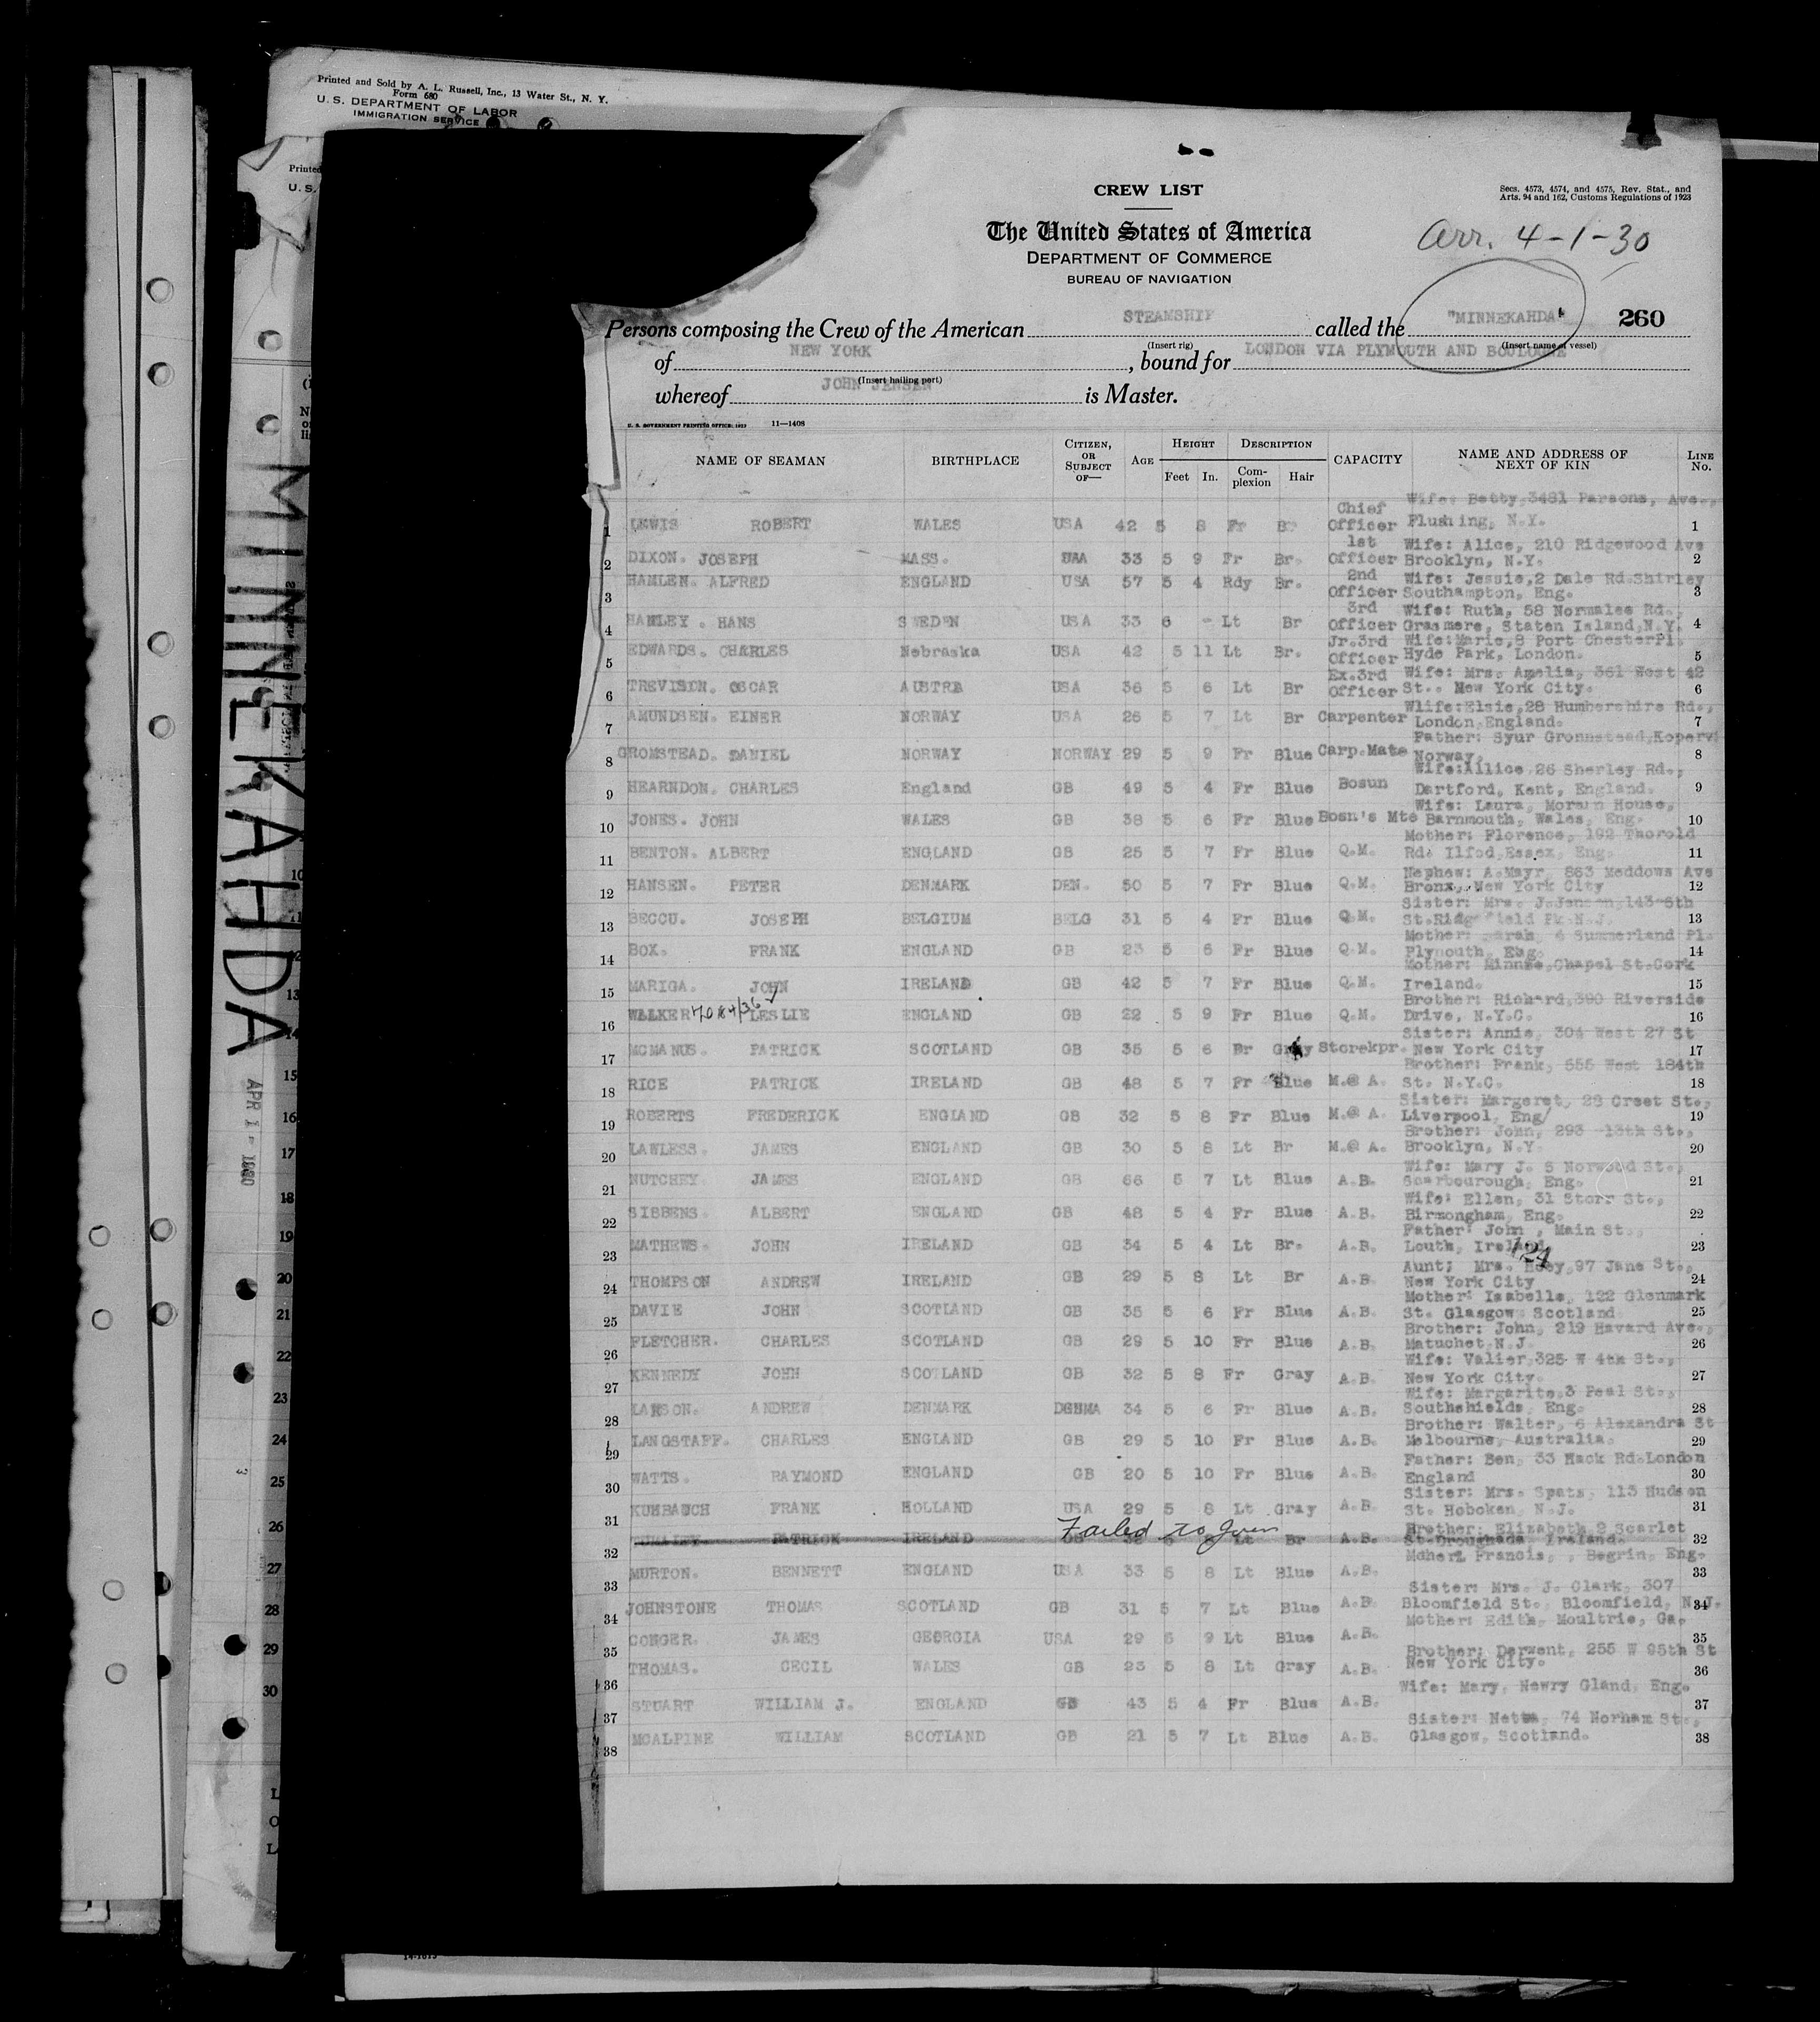 Printed and Sold by A. L. Russell, Inc., 13 Water St., N. Y.
Form 680
U. S. DEPARTMENT OF LABOR
IMMIGRATION SERVICE
Printed
U. S.
MINNEKAHDA
APR 1 - 1930
CREW LIST
Secs. 4573, 4574, and 4575, Rev. Stat., and
Arts. 94 and 162, Customs Regulations of 1923
The United States of America
DEPARTMENT OF COMMERCE
BUREAU OF NAVIGATION
Arr. 4-1-30
Persons composing the Crew of the American STEAMSHIP called the "MINNEKAHDA" 260
(Insert rig) (Insert name of vessel)
of NEW YORK, bound for LONDON VIA PLYMOUTH AND BOULOGNE
(Insert hailing port)
whereof JOHN JENSEN is Master.
U. S. GOVERNMENT PRINTING OFFICE: 1929 11—1408
NAME OF SEAMAN BIRTHPLACE CITIZEN, OR SUBJECT OF— AGE HEIGHT Feet In. DESCRIPTION Complexion Hair CAPACITY NAME AND ADDRESS OF NEXT OF KIN LINE No.
1 LEWIS ROBERT WALES USA 42 5 8 Fr Br Chief Officer Wife: Betty, 3481 Parsons, Ave., Flushing, N.Y. 1
2 DIXON. JOSEPH MASS. UAA 33 5 9 Fr Br. 1st Officer Wife: Alice, 210 Ridgewood Ave Brooklyn, N.Y. 2
3 HAMLEN. ALFRED ENGLAND USA 57 5 4 Rdy Br. 2nd Officer Wife: Jessie,2 Dale Rd.Shirley Southampton, Eng. 3
4 HANLEY . HANS SWEDEN USA 33 6 - Lt Br 3rd Officer Wife: Ruth, 58 Normalee Rd., Grasmere, Staten Island,N.Y. 4
5 EDWARDS. CHARLES Nebraska USA 42 5 11 Lt Br. Jr.3rd Officer Wife:Marie,8 Port ChesterPl. Hyde Park, London. 5
6 TREVISON. OSCAR AUSTRA USA 36 5 6 Lt Br Ex.3rd Officer Wife: Mrs. Amelia, 361 West 42 St.. New York City. 6
7 AMUNDSEN. EINER NORWAY USA 26 5 7 Lt Br Carpenter Wlife:Elsie,28 Humbershire Rd., London,England. 7
8 GROMSTEAD. DANIEL NORWAY NORWAY 29 5 9 Fr Blue Carp.Mate Father: Syur Gronnstead,Kopervi Norway. 8
9 HEARNDON. CHARLES England GB 49 5 4 Fr Blue Bosun Wife:Ailice 26 Sherley Rd., Dartford, Kent, England. 9
10 JONES. JOHN WALES GB 38 5 6 Fr Blue Bosn's Mte Wife: Laura, Morawn House, Barnmouth, Wales, Eng. 10
11 BENTON. ALBERT ENGLAND GB 25 5 7 Fr Blue Q.M. Mother: Florence, 192 Thorold Rd. Ilfod,Essex, Eng. 11
12 HANSEN. PETER DENMARK DEN. 50 5 7 Fr Blue Q.M. Nephew: A.Mayr, 863 Meddows Ave Bronx, New York City 12
13 BECCU. JOSEPH BELGIUM BELG 31 5 4 Fr Blue Q.M. Sister: Mrs. J.Jensen,143-6th St.Ridgefield Pk N.J. 13
14 BOX. FRANK ENGLAND GB 23 5 6 Fr Blue Q.M. Mother: Sarah, 4 Summerland Pl. Plymouth, Eng. 14
15 MARIGA. JOHN IRELAND GB 42 5 7 Fr Blue Q.M. Mother: Minnie,Chapel St.Cork Ireland. 15
16 WALKER LESLIE ENGLAND GB 22 5 9 Fr Blue Q.M. Brother: Richard,390 Riverside Drive, N.Y.C. 16
17 MCMANUS. PATRICK SCOTLAND GB 35 5 6 Br Gray Storekpr. Sister: Annie, 304 West 27 St New York City 17
18 RICE PATRICK IRELAND GB 48 5 7 Fr Blue M.@ A. Brother: Frank, 555 West 184th St. N.Y.C. 18
19 ROBERTS FREDERICK ENGLAND GB 32 5 8 Fr Blue M.@ A. Sister: Margeret, 28 Creet St., Liverpool, Eng/ 19
20 LAWLESS. JAMES ENGLAND GB 30 5 8 Lt Br M.@ A. Brother: John, 293 13th St., Brooklyn, N.Y. 20
21 NUTCHEY. JAMES ENGLAND GB 66 5 7 Lt Blue A.B. Wife: Mary J. 5 Norwood St., Scarbourough, Eng. 21
22 SIBBENS. ALBERT ENGLAND GB 48 5 4 Fr Blue A.B. Wife: Ellen, 31 Storr St., Birmongham, Eng. 22
23 MATHEWS. JOHN IRELAND GB 34 5 4 Lt Br. A.B. Father: John , Main St., Louth, Ireland 23
24 THOMPSON ANDREW IRELAND GB 29 5 8 Lt Br A.B. Aunt; Mrs. Hoey,97 Jane St., New York City 24
25 DAVIE JOHN SCOTLAND GB 35 5 6 Fr Blue A.B. Mother: Isabella, 122 Glenmark St. Glasgow Scotland 25
26 FLETCHER. CHARLES SCOTLAND GB 29 5 10 Fr Blue A.B. Brother: John, 219 Havard Ave., Matuchet N.J. 26
27 KENNEDY JOHN SCOTLAND GB 32 5 8 Fr Gray A.B. Wife: Valier,325 W 4th St., New York City. 27
28 LARSON. ANDREW DENMARK 34 5 6 Fr Blue A.B. Wife: Margarite,3 Peal St., Southshields, Eng. 28
29 LANGSTAFF. CHARLES ENGLAND GB 29 5 10 Fr Blue A.B. Brother: Walter, 6 Alexandra St Melbourne, Australia. 29
30 WATTS. RAYMOND ENGLAND GB 20 5 10 Fr Blue A.B. Father: Ben, 33 Hack Rd.London England 30
31 KUMBAUCH FRANK HOLLAND USA 29 5 8 Lt Gray A.B. Sister: Mrs. Spats, 113 Hudson St. Hoboken, N.J. 31
Failed to Join
32 PATRICK IRELAND GB Lt Br A.B. Brother: Elizabeth 2 Scarlet St.Droughada Ireland. 32
33 MURTON. BENNETT ENGLAND USA 33 5 8 Lt Blue A.B. Francis, , Begrin, Eng. 33
34 JOHNSTONE THOMAS SCOTLAND GB 31 5 7 Lt Blue A.B. Sister: Mrs. J. Clark, 307 Bloomfield St., Bloomfield, N.J. 34
35 CONGER. JAMES GEORGIA USA 29 5 9 Lt Blue A.B. Mother: Edith, Moultrie, Ga. 35
36 THOMAS. CECIL WALES GB 23 5 8 Lt Gray A.B. Brother: Derwent, 255 W 95th St New York City. 36
37 STUART WILLIAM J. ENGLAND GB 43 5 4 Fr Blue A.B. Wife: Mary, Newry Gland, Eng. 37
38 MCALPINE WILLIAM SCOTLAND GB 21 5 7 Lt Blue A.B. Sister: Netta, 74 Norham St., Glasgow, Scotland. 38